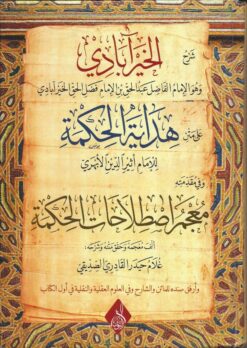 شرح
الخيرآبادي
وهو الإمام الفاضل عبد الحق بن الإمام فضل الحق الخيرآبادي
على متن
هداية الحكمة
للإمام أثير الدين الأبهري
وفي مقدمته
معجم اصطلاحات الحكمة
ألف معجمه وحقق متنه وشرحه:
غلام حيدر القادري الصديقي
وأرفق سنده للماتن والشارح وفي العلوم العقلية والنقلية في أول الكتاب